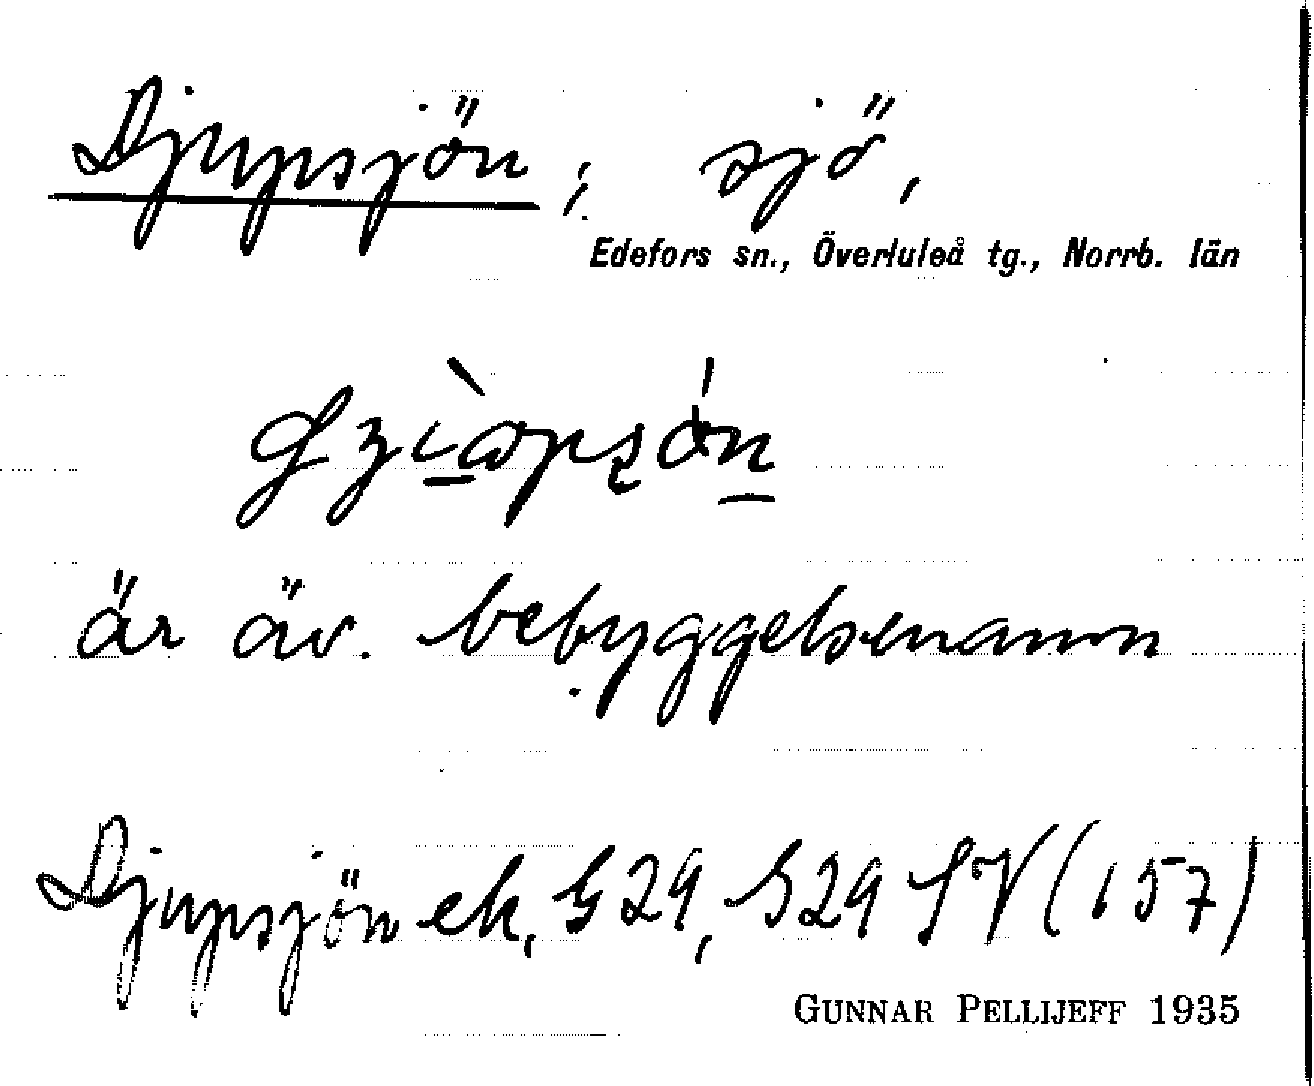 Djupsjön ; sjö ,
Edefors sn., Överluleå tg., Norrb. län
är äv. bebyggelsenamn
Djupsjön ek, G 29, S 29 SV (157)
GUNNAR PELLIJEFF 1935